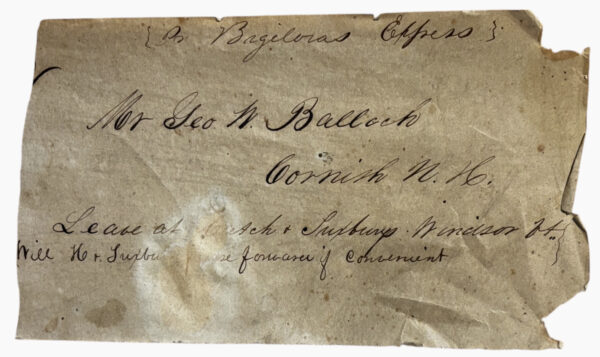 { Pr Bigelows Express }
Mr Geo W. Balloch
Cornish N. H.
Leave at & Tuxburys Windsor Vt. }
Will H & forward if convenient